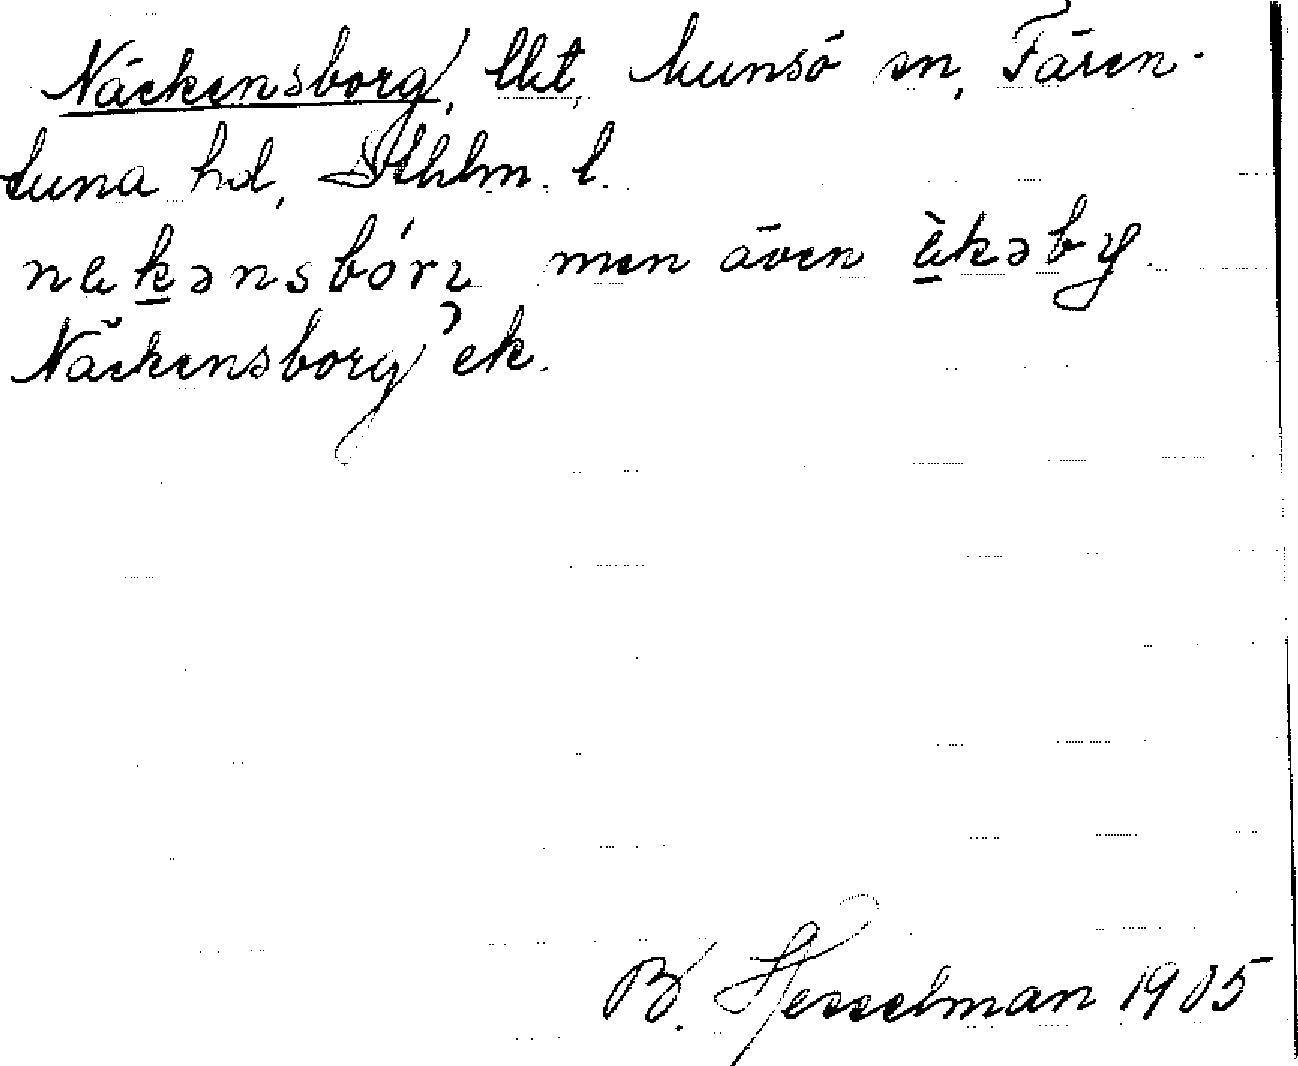 Näckensborg, lht, Munsö sn, Fären-
tuna hd, Sthlm. l.
nek̲ənsbórɪ men även è̲kəby.
Näckensborg ek.
B. Hesselman 1905